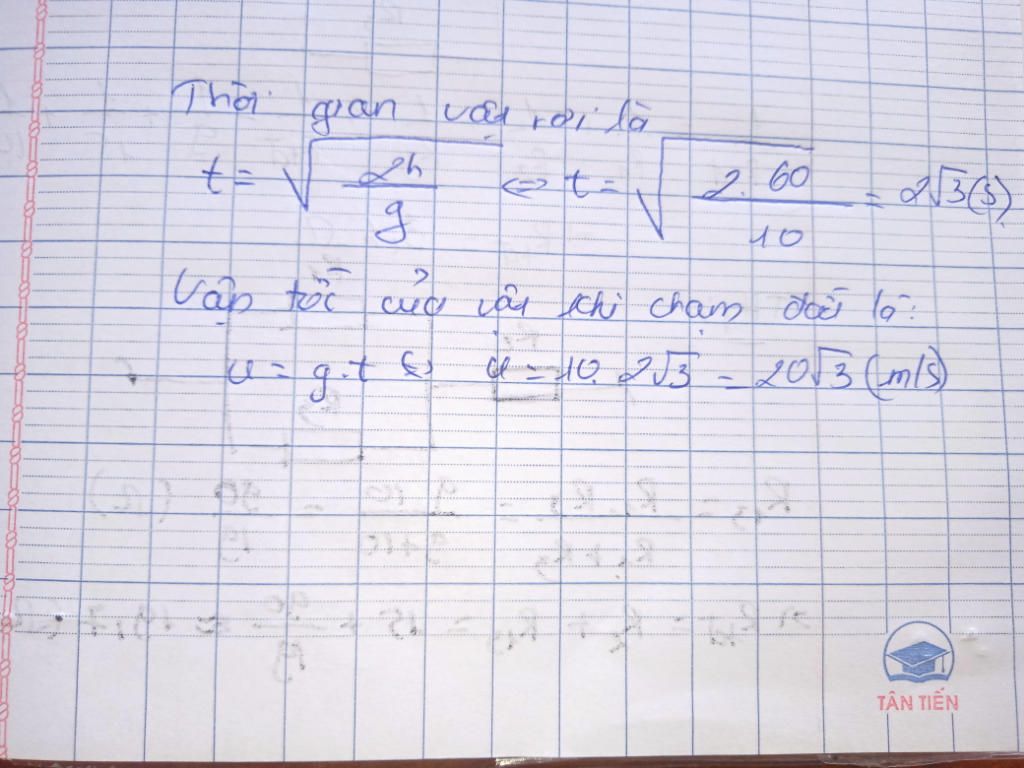 Thời gian vật rơi là
t = √(2h/g) <=> t = √(2.60/10) = 2√3 (s)
Vận tốc của vật khi chạm đất là:
v = g.t <=> v = 10. 2√3 = 20√3 (m/s)
TÂN TIẾN